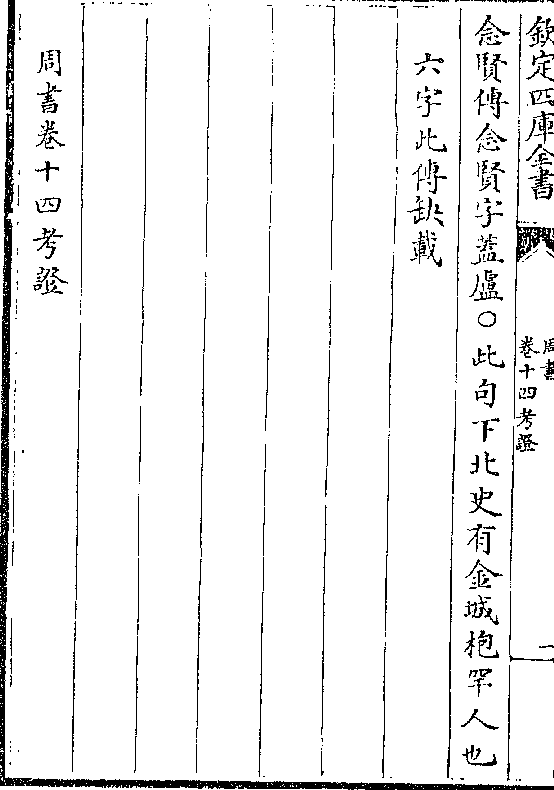 欽定四庫全書
周書
卷十四考證
一
念賢傳念賢字蓋盧○此句下北史有金城枹罕人也
六字此傳缺載
周書卷十四考證